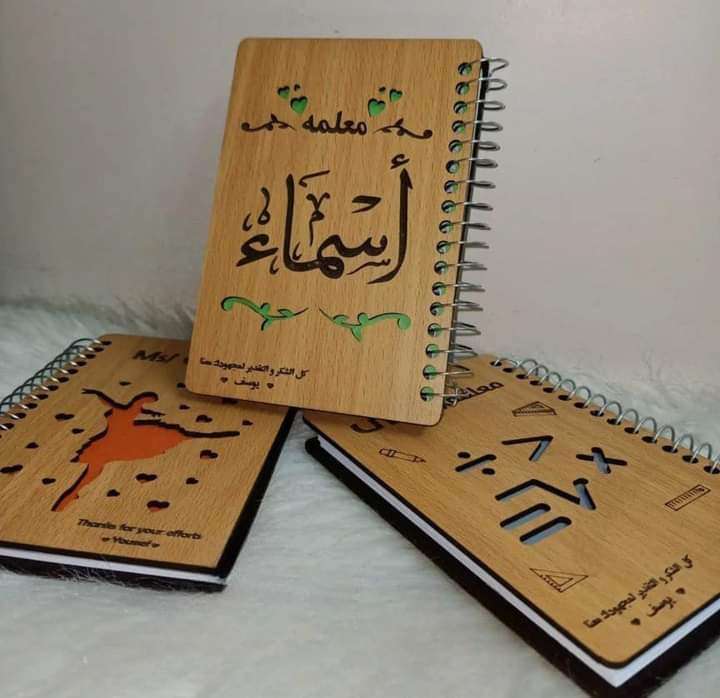 معلمه
أسماء
كل الشكر و التقدير لمجهودك معنا
يوسف
Ms/
Thanks for your efforts
Yousef
كل الشكر و التقدير لمجهودك معنا
يوسف